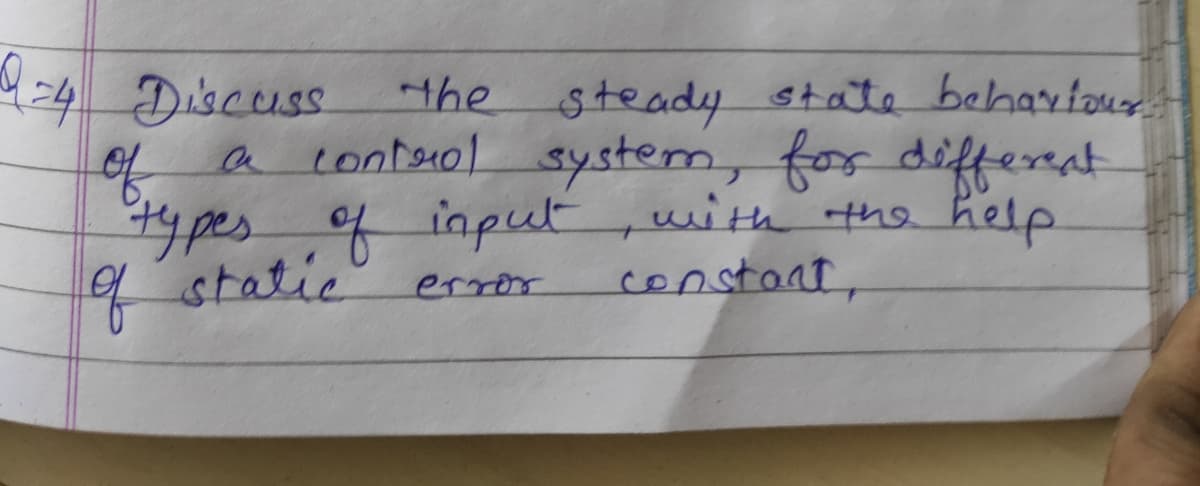 Q=4 Discuss the steady state behaviour
of a control system, for different
types of input, with the help
of static error constant,